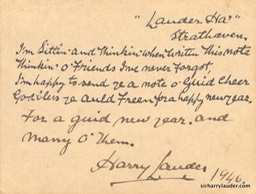 "Lauder Ha"
Strathaven.
I'm Sittin' and Thinkin' when writin This note
Thinkin' o' Friends I've never Forgot
I'm happy to send ye a note o' Guid Cheer
God bless ye auld Freen for a happy new year.
For a guid new year, and
many o' them.
Harry Lauder
1946.
sirharrylauder.com